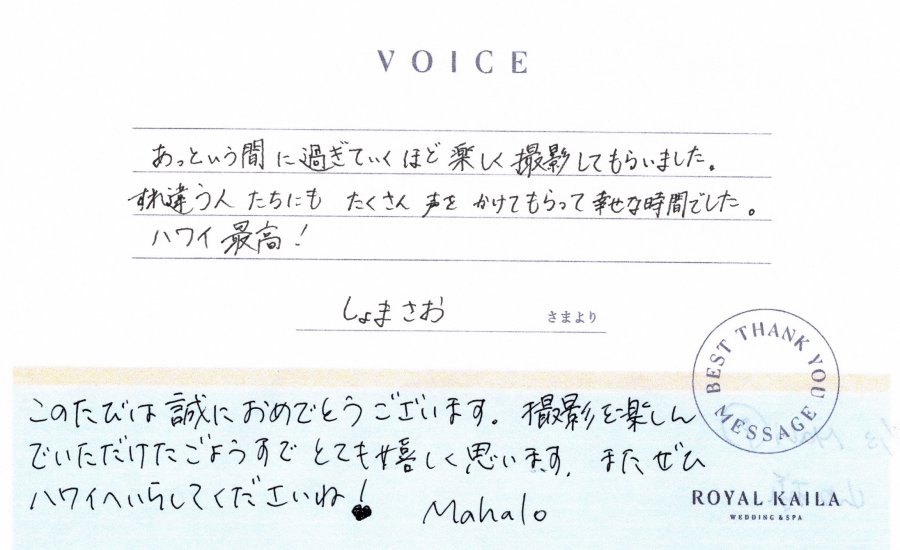 VOICE
あっという間に過ぎていくほど楽しく撮影してもらいました。
すれ違う人たちにも たくさん声をかけてもらって幸せな時間でした。
ハワイ最高！
しょまさお さまより
BEST THANK YOU MESSAGE
このたびは誠におめでとうございます。撮影を楽しん
でいただけたごようすで とても嬉しく思います。またぜひ
ハワイへいらしてくださいね！
Mahalo
ROYAL KAILA
WEDDING & SPA